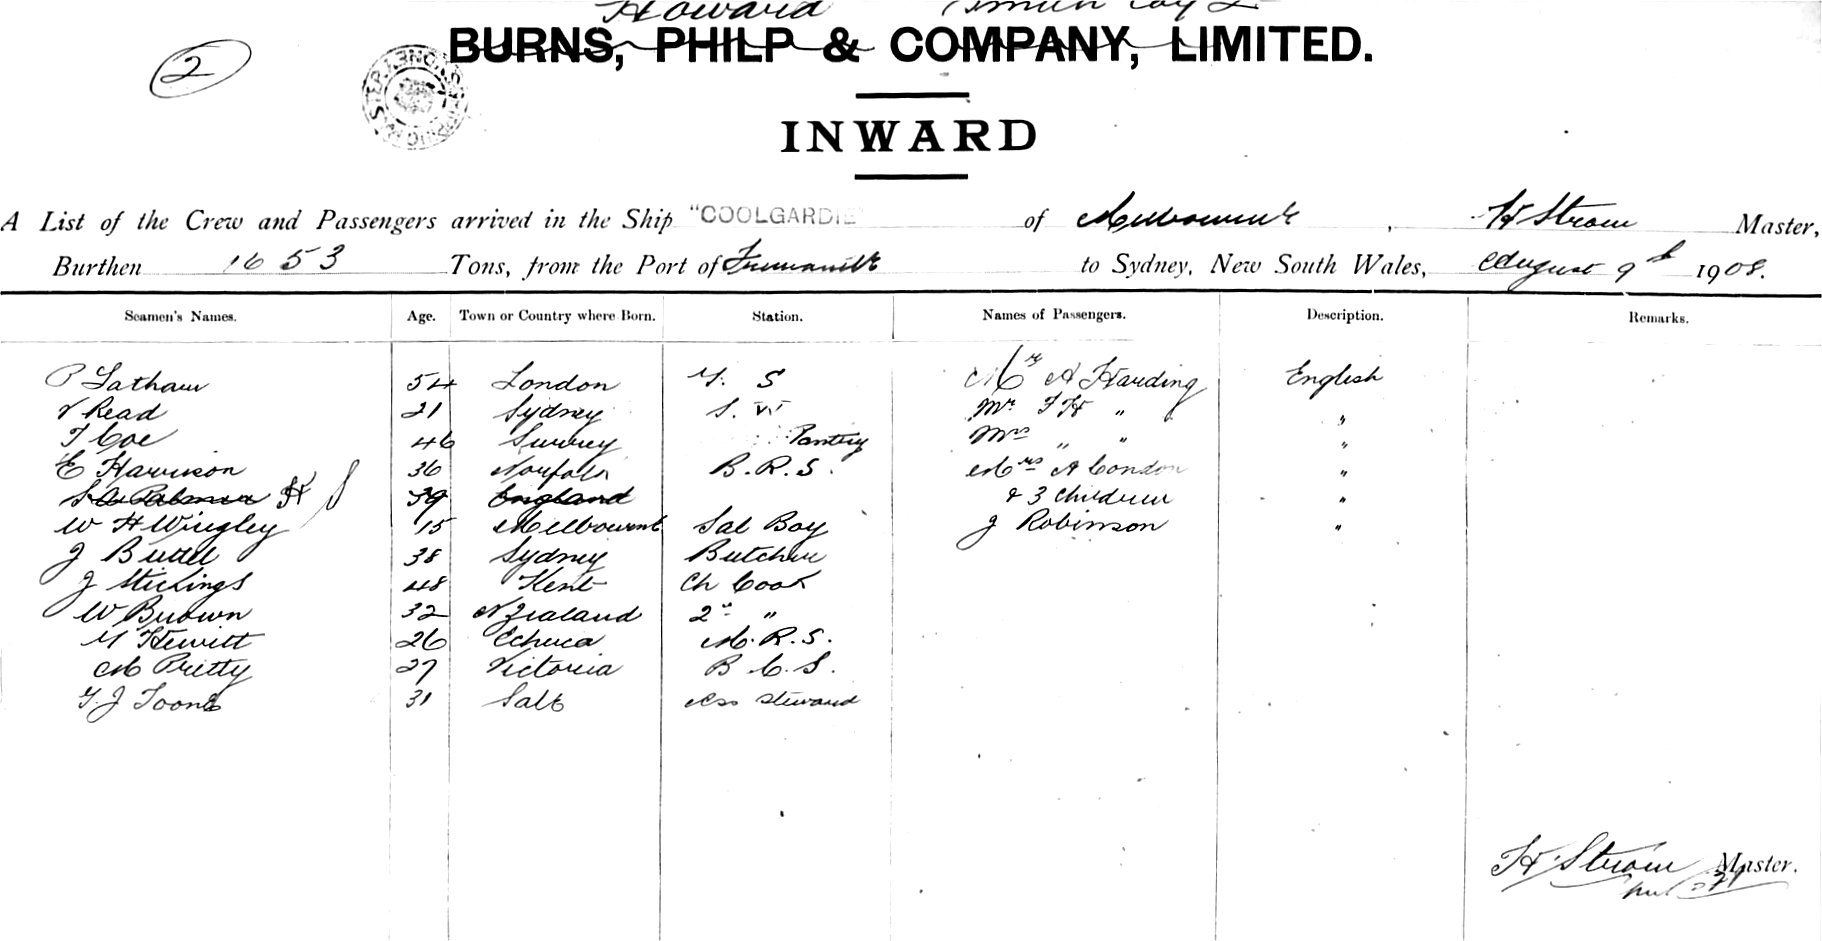 Howard Smith Coy L
2
BURNS, PHILP & COMPANY, LIMITED.
INWARD
A List of the Crew and Passengers arrived in the Ship "COOLGARDIE" of Melbourne, H Strom Master,
Burthen 1653 Tons, from the Port of Fremantle to Sydney, New South Wales, August 9th 1908.
Seamen's Names. Age. Town or Country where Born. Station. Names of Passengers. Description. Remarks.
P Latham 54 London F. S Mr A Harding English
Read 21 Sydney S. W Mr F H " "
F Coe 46 Surrey Pantry Mrs " " "
E Harrison 36 Norfolk B. R. S. Mrs A Condon "
Palmer 39 England & 3 Children "
W H Wrigley 15 Melbourne Sal Boy J Robinson "
J Buttel 38 Sydney Butcher
J Stickings 48 Kent Ch Cook
W Brown 32 N Zealand 2nd "
Hewitt 26 Echuca M. R. S.
M Pretty 27 Victoria B C. S.
J Toone 31 Sale Ass Steward
H Strom Master.